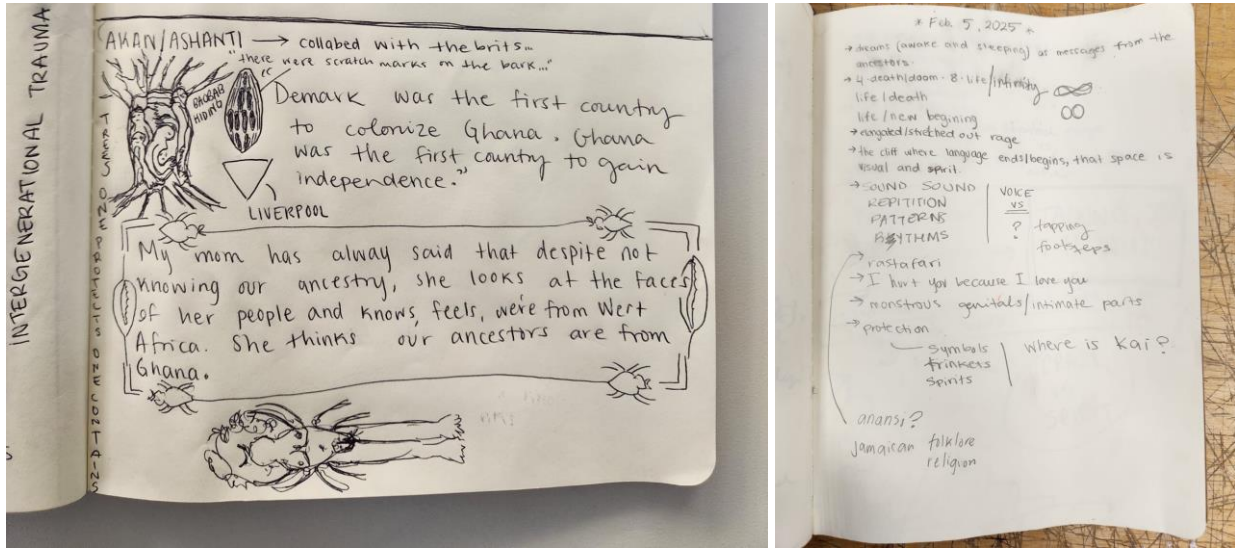 INTERGENERATIONAL TRAUMA
TREES ONE PROTECTS ONE CONTAINS
AKAN/ASHANTI → collabed with the brits...
"there were scratch marks on the bark..."
BAOBAB
HIDING
"Demark was the first country
to colonize Ghana. Ghana
was the first country to gain
independence."
LIVERPOOL
My mom has alway said that despite not
knowing our ancestry, she looks at the faces
of her people and knows, feels, we're from West
Africa. She thinks our ancestors are from
Ghana.
* Feb. 5, 2025 *
→ dreams (awake and sleeping) as messages from the
ancestors.
→ 4-death/doom - 8-life/infinity
life/death
life/new begining
→ elongated/stretched out rage
→ the cliff where language ends/begins, that space is
visual and spiril.
→ SOUND SOUND
REPITITION
PATTERNS
RYTHMS
VOICE
VS
?
tapping
footsteps
→ rastafari
→ I hurt you because I love you
→ monstrous genitals/intimate parts
→ protection
symbols
trinkets
spirits
where is Kai?
anansi?
jamaican folklore
religion